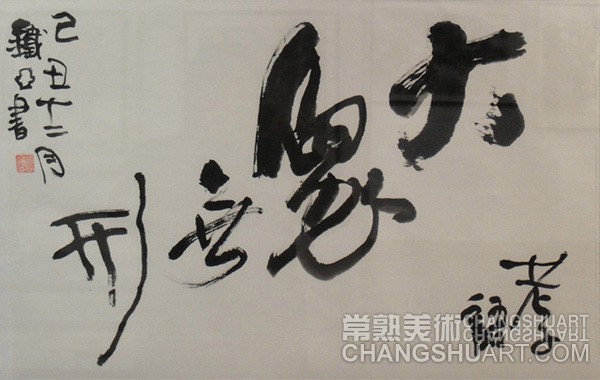 大象無形
老子
語
己丑十二月
鐵 書
常熟美術 CHANGSHUART
CHANGSHUART.COM